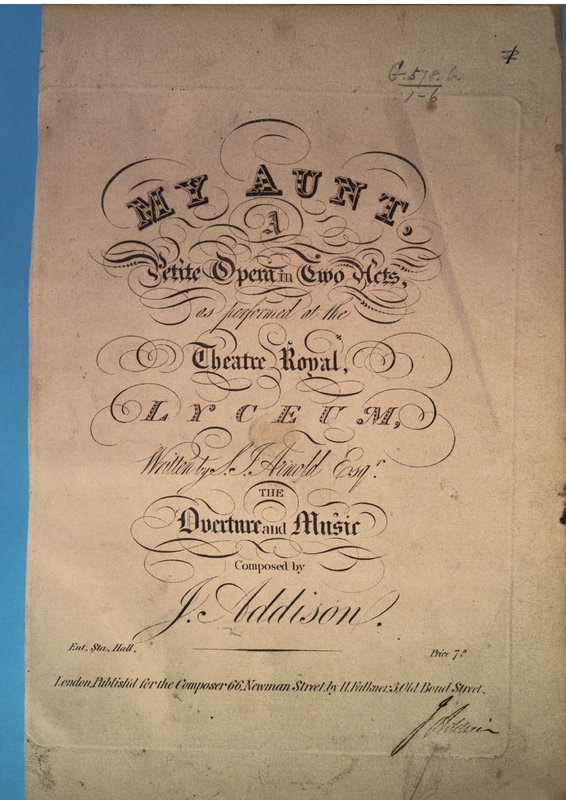 G. 578. b.
1-6
MY AUNT,
A
Petite Opera in Two Acts,
as performed at the
Theatre Royal,
LYCEUM,
Written by S. J. Arnold Esqr.
THE
Overture and Music
Composed by
J. Addison.
Ent. Sta. Hall.
Price 7s
London, Publish'd for the Composer 66, Newman Street, by H. Falkner, 3, Old Bond Street.
J Addison